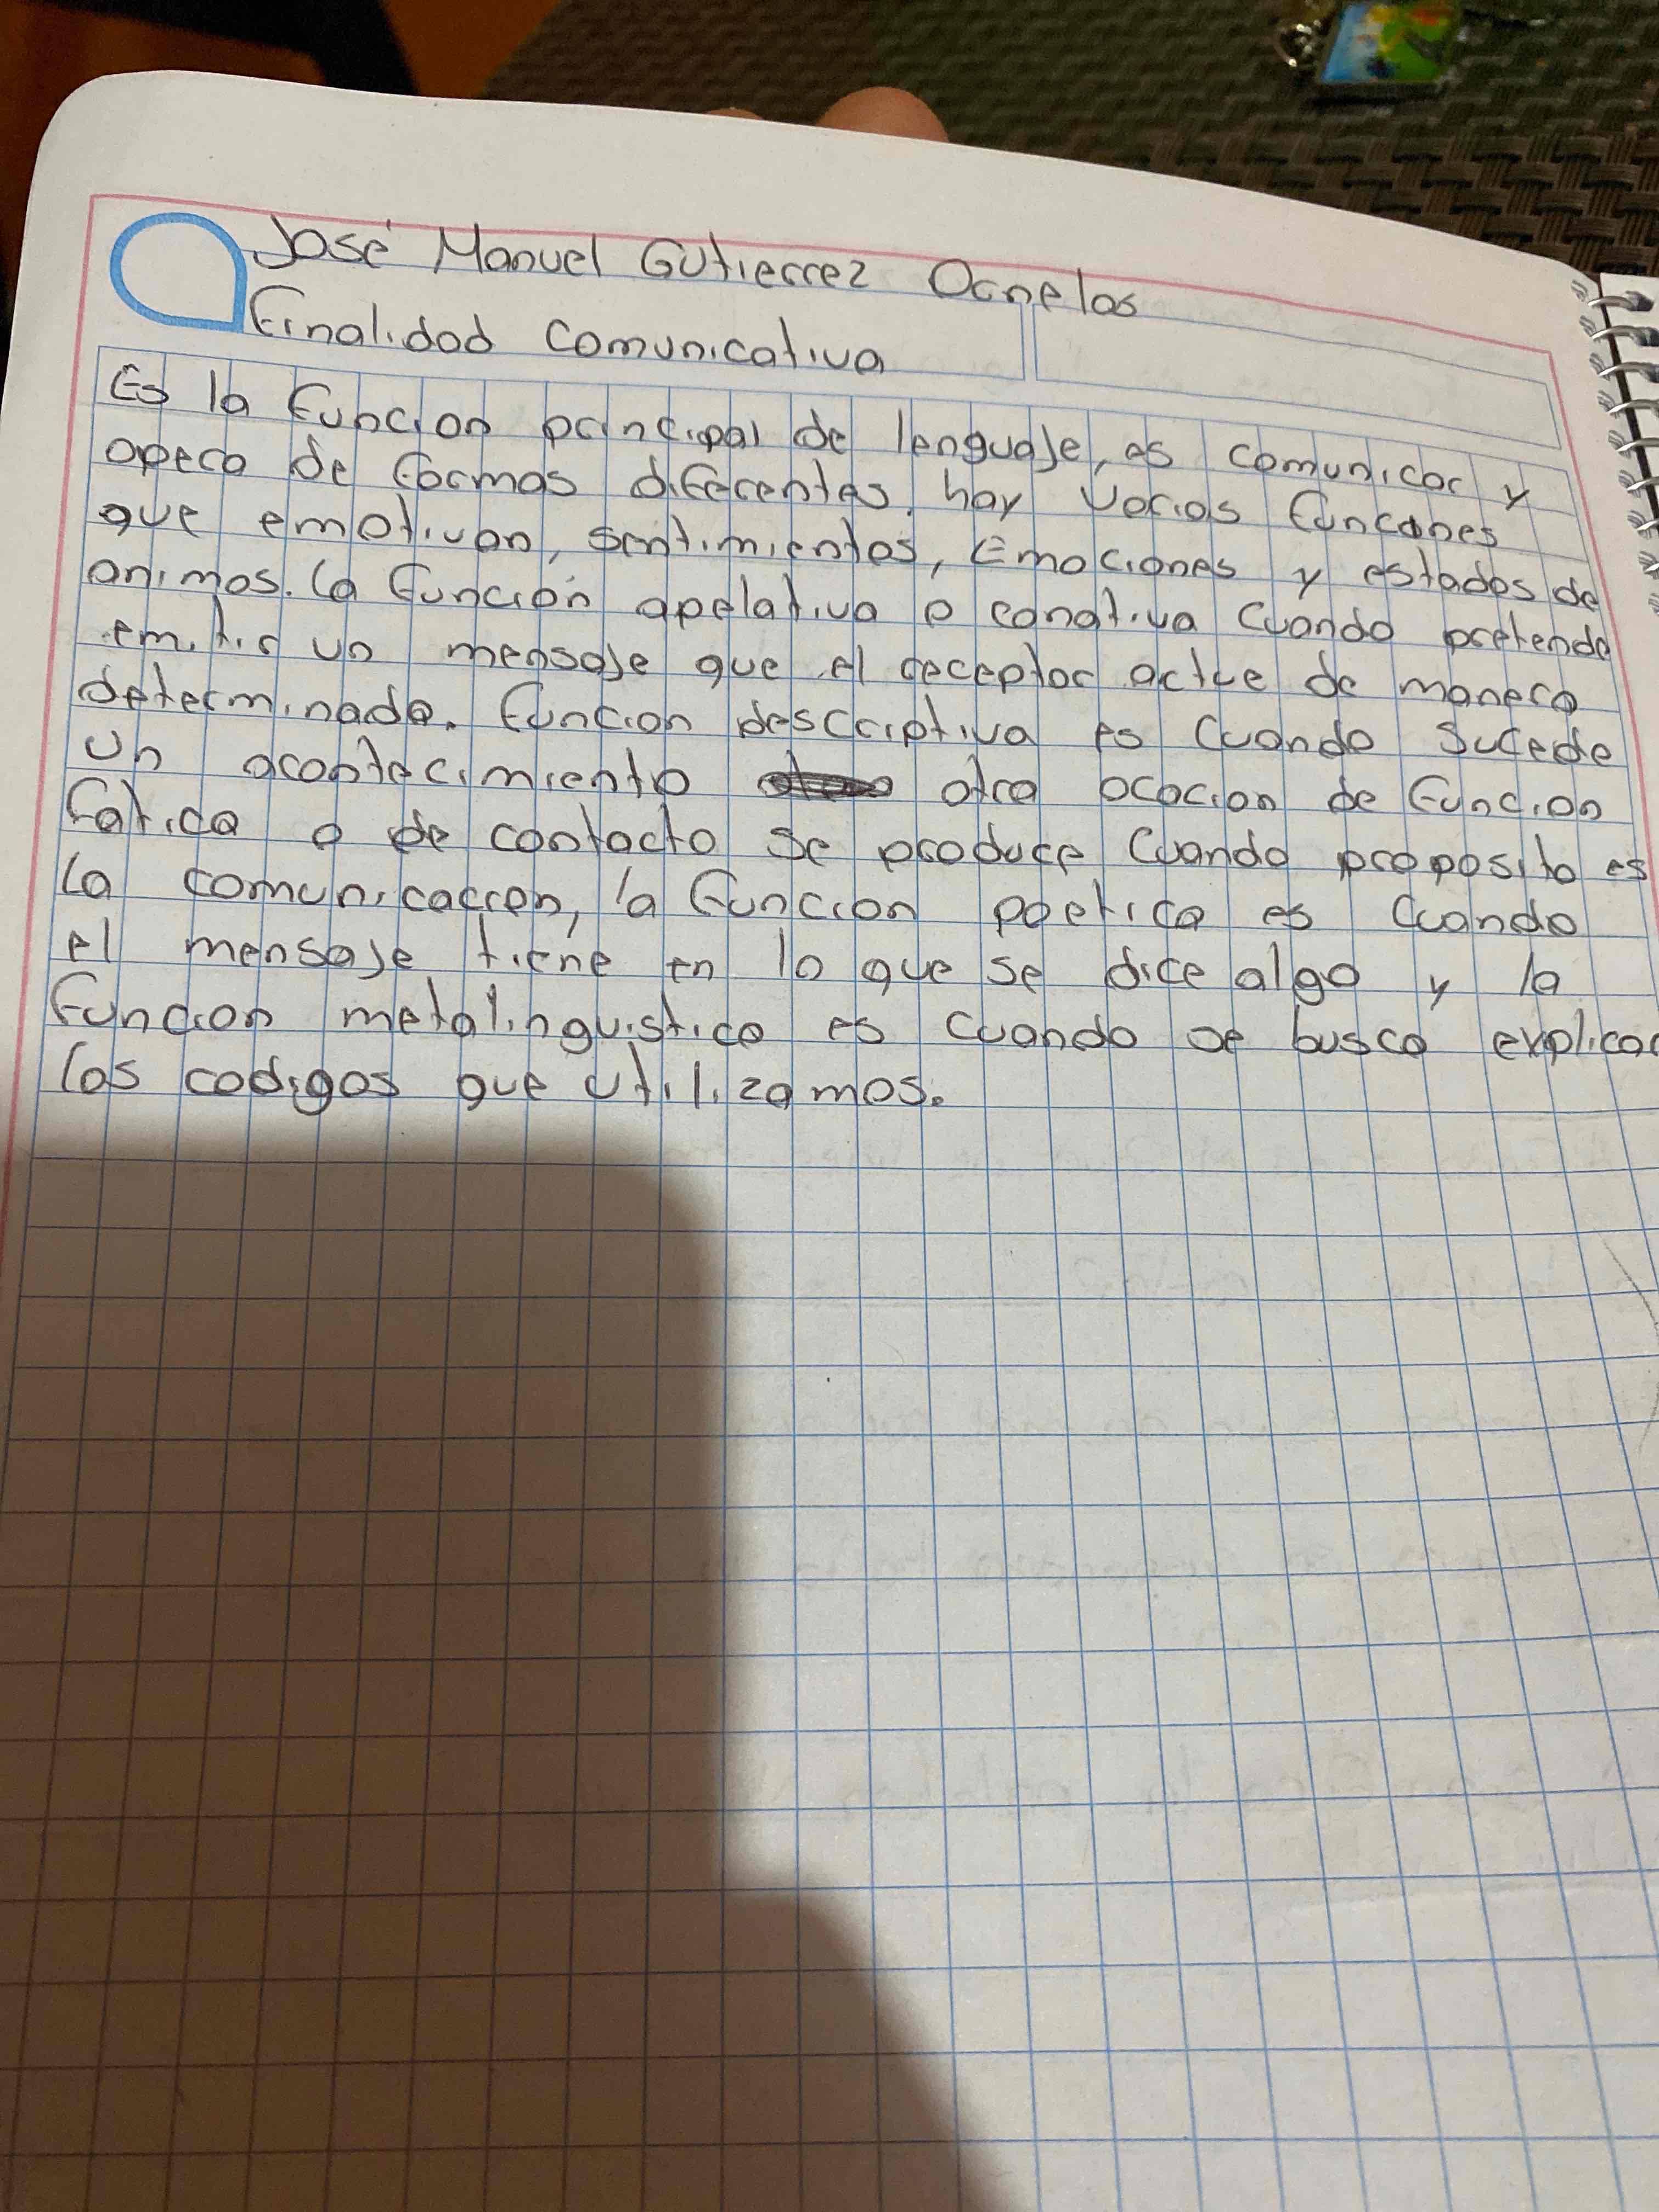 José Manuel Gutierrez Ornelas
Finalidad comunicativa
Es la funcion principal de lenguaje, es comunicar y
opera de formas diferentes, hay varios funcones
que emotivan, sentimientos, Emociones y estados de
animos. La función apelativa o conativa cuando pretende
emitir un mensaje que el receptor actue de manera
determinada. funcion descriptiva es cuando sucede
un acontecimiento otra ocacion de funcion
fatica o de contacto se produce cuando proposito es
la comunicacion, la funcion poetica es cuando
el mensaje tiene en lo que se dice algo y la
funcion metalinguistica es cuando se busca explicar
los codigos que utilizamos.